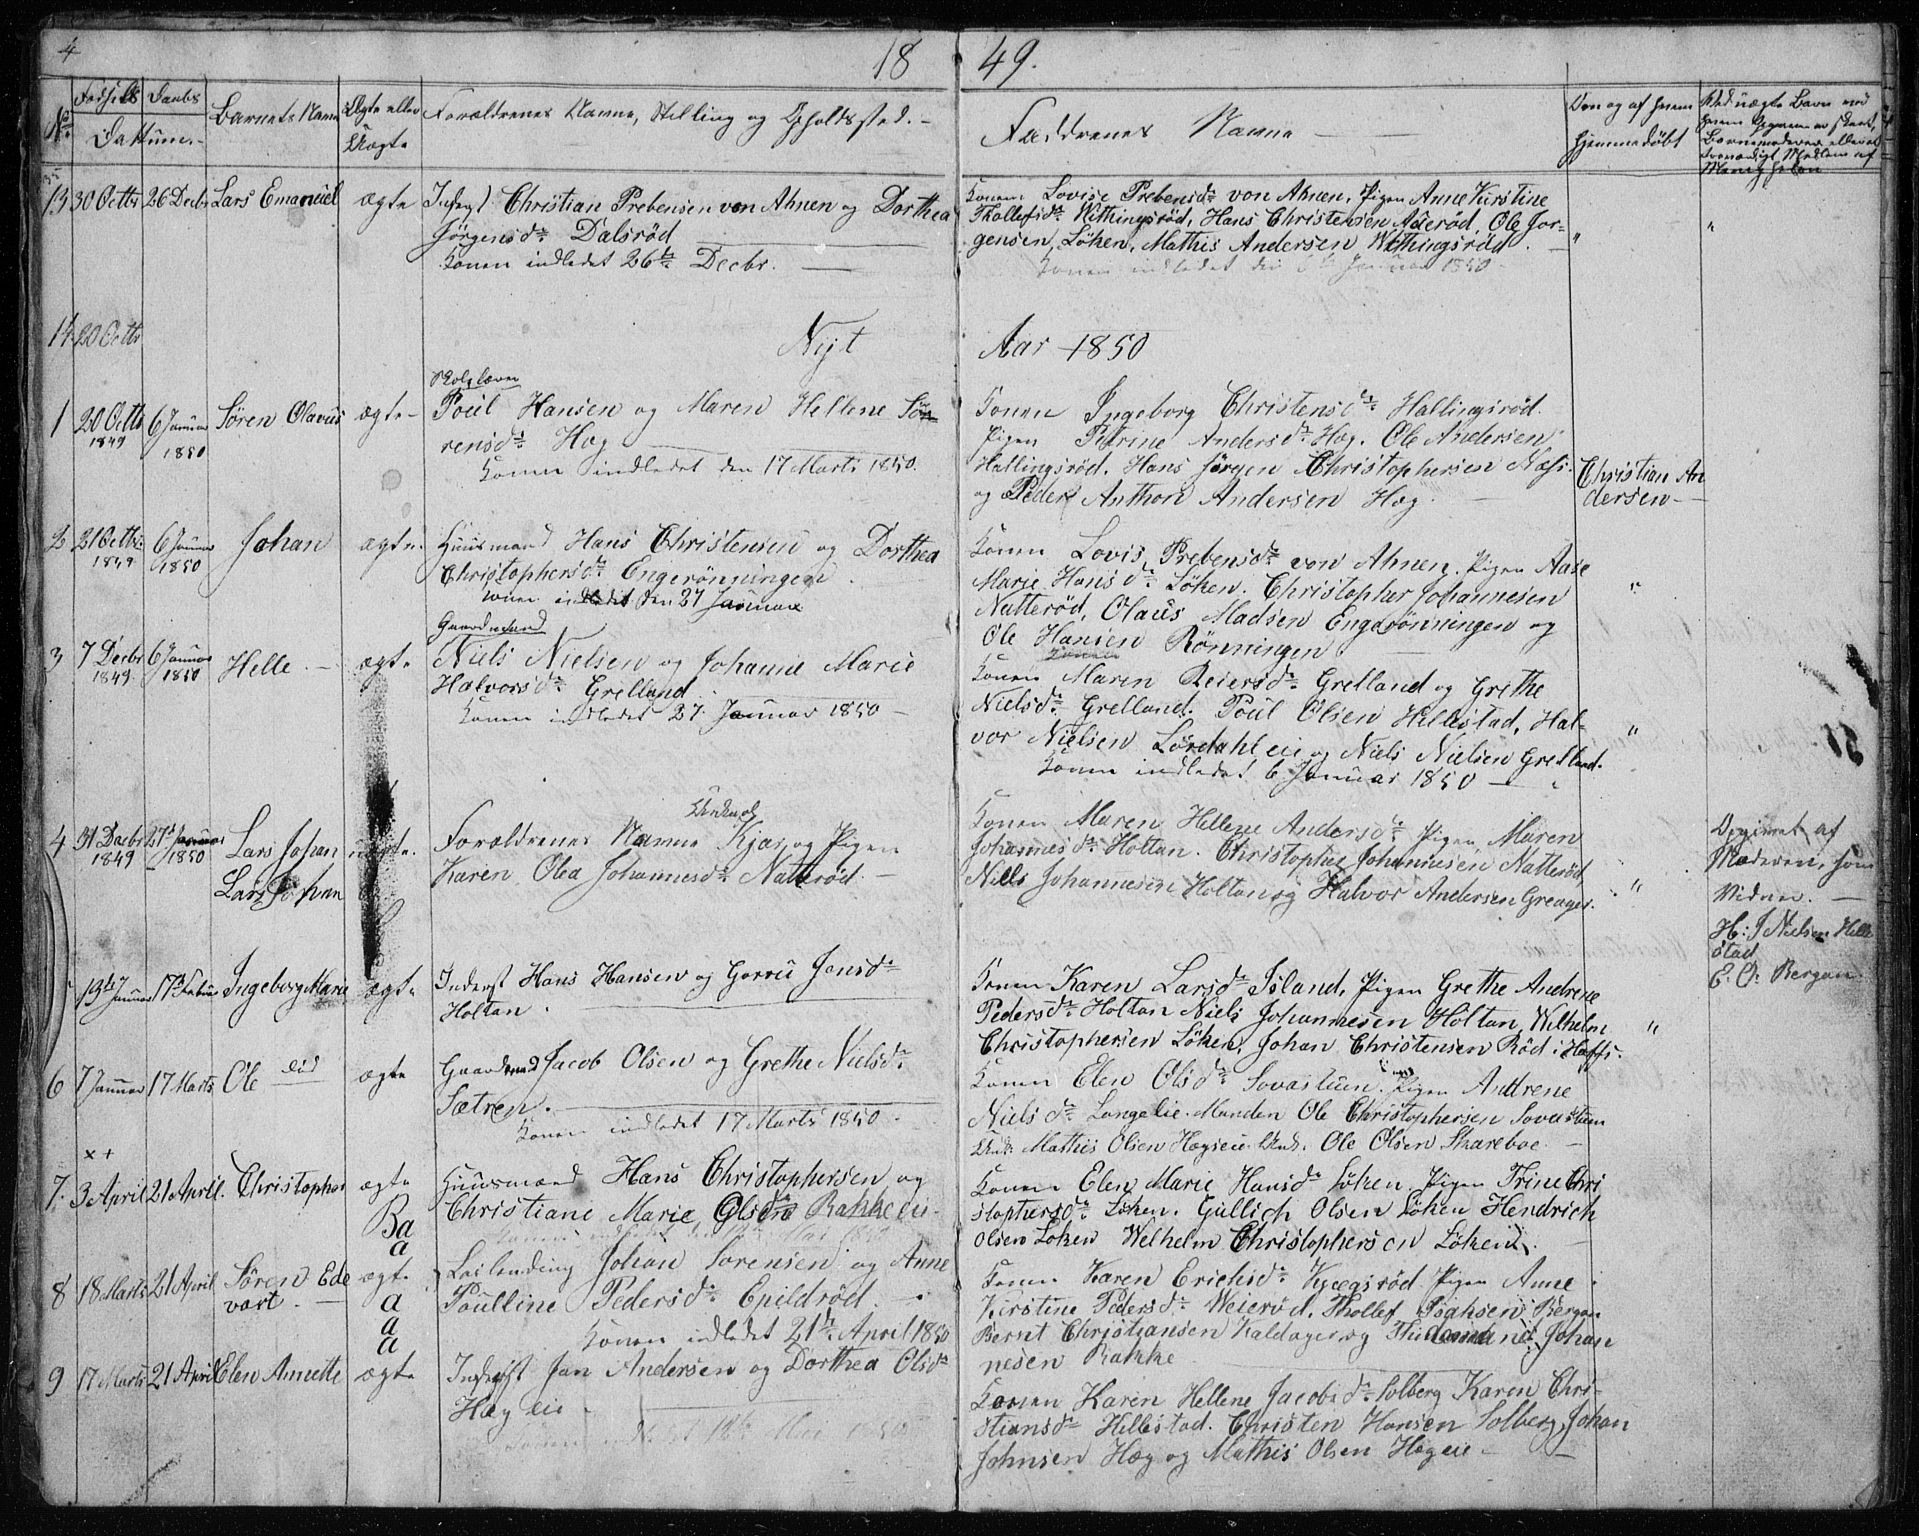 4
18 49.
No.
Fødsels Daabs
Dattum.
Barnets Navne
Ægte eller
Uægte
Forældrenes Navne, Stilling og Opholdssted.
Faddrenes Navne
Hvem
hjemmedøbt
13 30 Octbr 26 Decbr Lars Emanuel ægte
Christian Prebensen von Ahnen og Dorthea
Jörgensdr Dalsröd
Konen indledet 26de Decbr.
Konen Lovise Prebensdr von Ahnen, Pigen Anne Kirstine
Thollefsdr Withingsröd, Hans Christensen Aaseröd, Ole Jör-
gensen Löken, Mathis Andersen Withingsröd
Konen indledet die 6te Januar 1850
14. 20 Octbr
Nyt Aar 1850
1 20 Octbr 1849 6 Januar 1850 Sören Olavus ægte
Skolelærer
Poul Hansen og Maren Hellene Sö-
rensdr Hæg
Konen indledet den 17 Marts 1850.
Konen Ingeborg Christensdr Hallingsröd.
Pigen Petrine Andersdr Hæg. Ole Andersen
Hallingsröd. Hans Jörgen Christophersen Næss.
og Peder Anthon Andersen Hæg
Christian An
dersen
2 21 Octbr 1849 6 Januar 1850 Johan ægte
Huusmand Hans Christensen og Dorthea
Christophersdr Engerönningen
Konen indledet den 27 Januar
Konen Lovis Prebensdr von Ahnen. Pigen Aase
Marie Hansdr Löken. Christopher Johannesen
Natteröd, Olaus Madsen Engerönningen og
Ole Hansen Rönningen
3 7 Decbr 1849. 6 Januar 1850 Helle ægte
Gaardmand
Niels Nielsen og Johanne Marie
Halvorsdr Grelland
Konen indledet 27. Januar 1850
Konen Maren Reiersdr Grelland og Grethe
Nielsdr Grelland. Poul Olsen Hillestad, Hal-
vor Nielsen Lördahl eie og Niels Nielsen Grelland.
Konen indledet 6 Januar 1850
4 31 Decbr 1849 27de Januar 1850 Lars Johan uægte.
Lars Johan
Forældrenes Navne Kjær og Pigen
Karen Olea Johannesdr Natteröd
Konen Maren Hellene Andersdr Pigen Maren
Johannesdr Holtan. Christopher Johannesen Natteröd
Niels Johannesen Holtan og Halvor Andersen Greager.
Opgivet af
Moderen, som
Vidner.
H: J Nielsen Helle
stad
E. O. Bergan
13de Januar 17de Februar Ingeborg Marie ægte
Inderst Hans Hansen og Gorou Jensdr
Holtan.
Konen Karen Larsdr Island, Pigen Grethe Andrene
Pedersdr Holtan Niels Johannesen Holtan, Wilhelm
Christophersen Löken, Johan Christensen Röd i Haffs.
6 7 Januar 17 Marts Ole död ægte
Gaardmand Jacob Olsen og Grethe Nielsdr
Sætren.
Konen indledet 17 Marts 1850.
Konen Elen Olsdr Sovastuen. Pigen Andrene
Nielsdr Langelie. Manden Ole Christophersen Sovastuen
Unk. Mathis Olsen Hægeeie Unk. Ole Olsen Skareboe
x +
7. 3 April 21 April. Christopher ægte
Ba
a
Huusmand Hans Christophersen og
Christiane Marie Olsdr Bakke eie
Konen Elen Marie Hansdr Löken. Pigen Trine Chri
stophersdr Löken. Gullich Olsen Löken Hendrich
Olsen Löken Welhelm Christophersen Löken
8 18 Marts 21 April Sören Ede
vart. ægte
a
a
a
Leilending Johan Sörensen og Anne
Poulline Pedersdr Epildröd
Konen indledet 21de April 1850
Konen Karen Erichsdr Kjægsröd Pigen Anne
Kirstine Pedersdr Weieröd. Thollef Isaksen Bergan
Bernt Christiansen Kaldager og Thidemand Johan
nesen Bakke
9 17 Marts 21 April Elen Annette ægte
Inderst Jan Andersen og Dorthea Olsdr
Hæg eie
Konen Karen Hellene Jacobsdr Solberg Karen Chri-
stiansdr Hillestad. Christen Hansen Solberg, Johan
Johnsen Hæg og Mathis Olsen Hægeie